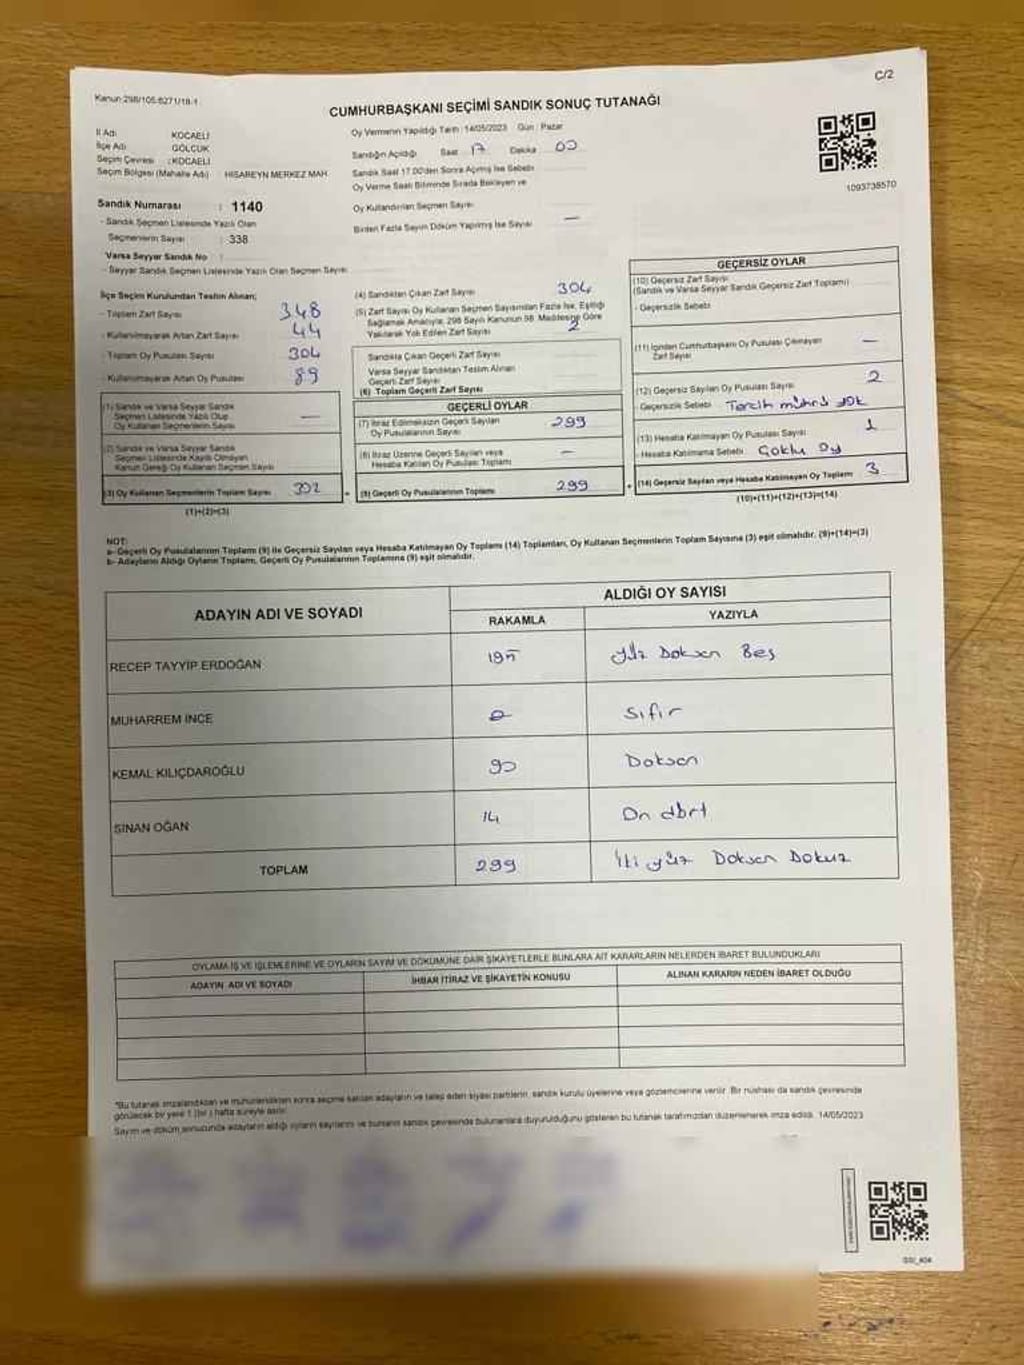 C/2
Kanun:298/105-6271/18-1
CUMHURBAŞKANI SEÇİMİ SANDIK SONUÇ TUTANAĞI
İl Adı KOCAELİ
İlçe Adı GÖLCÜK
Seçim Çevresi : KOCAELİ
Seçim Bölgesi (Mahalle Adı) HISAREYN MERKEZ MAH.
Sandık Numarası : 1140
- Sandık Seçmen Listesinde Yazılı Olan
Seçmenlerin Sayısı : 338
Varsa Seyyar Sandık No :
- Seyyar Sandık Seçmen Listesinde Yazılı Olan Seçmen Sayısı:
Oy Vermenin Yapıldığı Tarih :14/05/2023 Gün : Pazar
Sandığın Açıldığı Saat 17 Dakika 00
Sandık Saat 17.00'den Sonra Açılmış İse Sebebi
Oy Verme Saati Bitiminde Sırada Bekleyen ve
Oy Kullandırılan Seçmen Sayısı
Birden Fazla Sayım Döküm Yapılmış İse Sayısı —
1093738570
İlçe Seçim Kurulundan Teslim Alınan;
- Toplam Zarf Sayısı 348
- Kullanılmayarak Artan Zarf Sayısı 44
- Toplam Oy Pusulası Sayısı 304
- Kullanılmayarak Artan Oy Pusulası 89
(1) Sandık ve Varsa Seyyar Sandık
Seçmen Listesinde Yazılı Olup
Oy Kullanan Seçmen Sayısı —
(2) Sandık ve Varsa Seyyar Sandık
Seçmen Listesinde Kayıtlı Olmayan
Kanun Gereği Oy Kullanan Seçmen Sayısı
(3) Oy Kullanan Seçmenlerin Toplam Sayısı 302
(1)+(2)=(3)
(4) Sandıktan Çıkan Zarf Sayısı 304
(5) Zarf Sayısı Oy Kullanan Seçmen Sayısından Fazla İse, Eşitliği
Sağlamak Amacıyla, 298 Sayılı Kanunun 98. Maddesine Göre
Yakılarak Yok Edilen Zarf Sayısı 2
Sandıkta Çıkan Geçerli Zarf Sayısı
Varsa Seyyar Sandıktan Teslim Alınan
Geçerli Zarf Sayısı
(6) Toplam Geçerli Zarf Sayısı
GEÇERLİ OYLAR
(7) İtiraz Edilmeksizin Geçerli Sayılan
Oy Pusulalarının Sayısı 299
(8) İtiraz Üzerine Geçerli Sayılan veya
Hesaba Katılan Oy Pusulası Toplamı —
(9) Geçerli Oy Pusulalarının Toplamı 299
GEÇERSİZ OYLAR
(10) Geçersiz Zarf Sayısı
(Sandık ve Varsa Seyyar Sandık Geçersiz Zarf Toplamı)
- Geçersizlik Sebebi
(11) İçinden Cumhurbaşkanı Oy Pusulası Çıkmayan
Zarf Sayısı —
(12) Geçersiz Sayılan Oy Pusulası Sayısı 2
- Geçersizlik Sebebi Tercih mührü yok
(13) Hesaba Katılmayan Oy Pusulası Sayısı 1
- Hesaba Katılmama Sebebi Çoklu Oy
(14) Geçersiz Sayılan veya Hesaba Katılmayan Oy Toplamı 3
(10)+(11)+(12)+(13)=(14)
NOT:
a- Geçerli Oy Pusulalarının Toplamı (9) ile Geçersiz Sayılan veya Hesaba Katılmayan Oy Toplamı (14) Toplamları, Oy Kullanan Seçmenlerin Toplam Sayısına (3) eşit olmalıdır. (9)+(14)=(3)
b- Adayların Aldığı Oyların Toplamı, Geçerli Oy Pusulalarının Toplamına (9) eşit olmalıdır.
ADAYIN ADI VE SOYADI ALDIĞI OY SAYISI
RAKAMLA YAZIYLA
RECEP TAYYİP ERDOĞAN 195 Yüz Doksan Beş
MUHARREM İNCE 0 Sıfır
KEMAL KILIÇDAROĞLU 90 Doksan
SİNAN OĞAN 14 On dört
TOPLAM 299 İki yüz Doksan Dokuz
OYLAMA İŞ VE İŞLEMLERİNE VE OYLARIN SAYIM VE DÖKÜMÜNE DAİR ŞİKAYETLERLE BUNLARA AİT KARARLARIN NELERDEN İBARET BULUNDUKLARI
ADAYIN ADI VE SOYADI İHBAR İTİRAZ VE ŞİKAYETİN KONUSU ALINAN KARARIN NEDEN İBARET OLDUĞU
*Bu tutanak imzalandıktan ve mühürlendikten sonra seçime katılan adayların ve talep eden siyasi partilerin, sandık kurulu üyelerine veya gözlemcilerine verilir. Bir nüshası da sandık çevresinde
görülecek bir yere 1 (bir) hafta süreyle asılır.
Sayım ve döküm sonucunda adayların aldığı oyların sayılarını ve bunların sandık çevresinde bulunanlara duyurulduğunu gösteren bu tutanak tarafımızdan düzenlenerek imza edildi. 14/05/2023